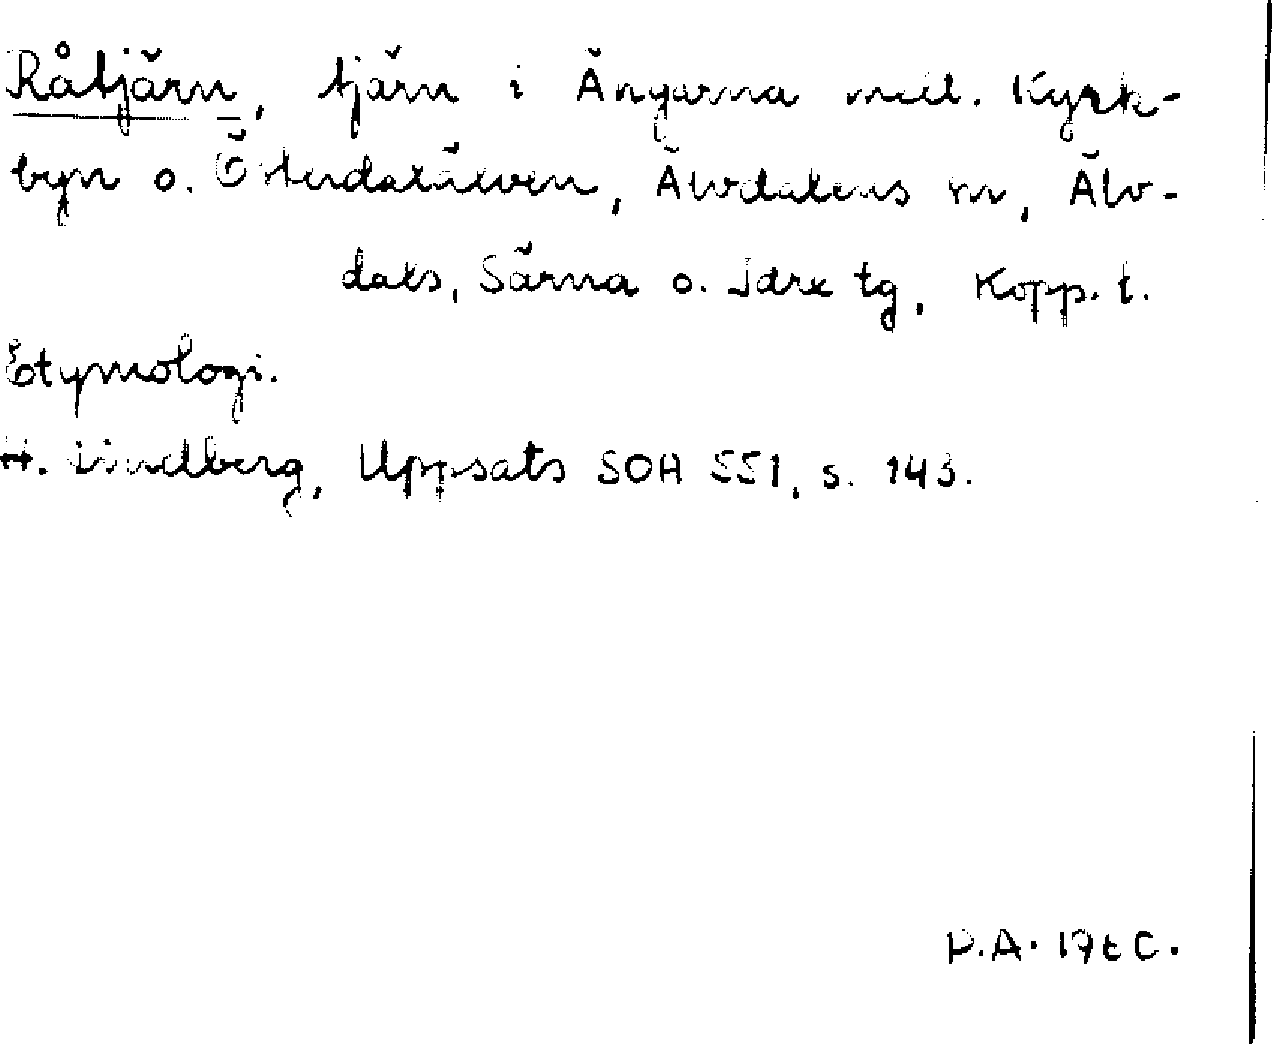 Råtjärn, tjärn i Ängarna mell. Kyrk-
byn o. Österdalälven, Älvdalens sn, Älv-
dals, Särna o. Idre tg, Kopp. l.
Etymologi.
H. Lindberg, Uppsats SOA 551, s. 143.
P.A.